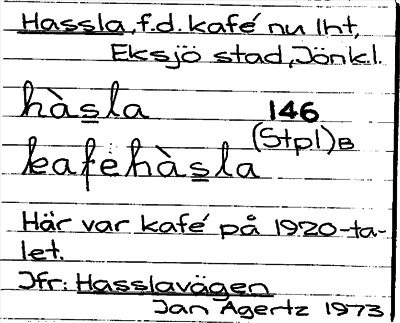 Hassla, f.d. kafé nu lht,
Eksjö stad, Jönk.l.
hàsla 146
(Stpl) B
kafehàsla
Här var kafé på 1920-ta-
let.
Jfr: Hasslavägen
Jan Agertz 1973